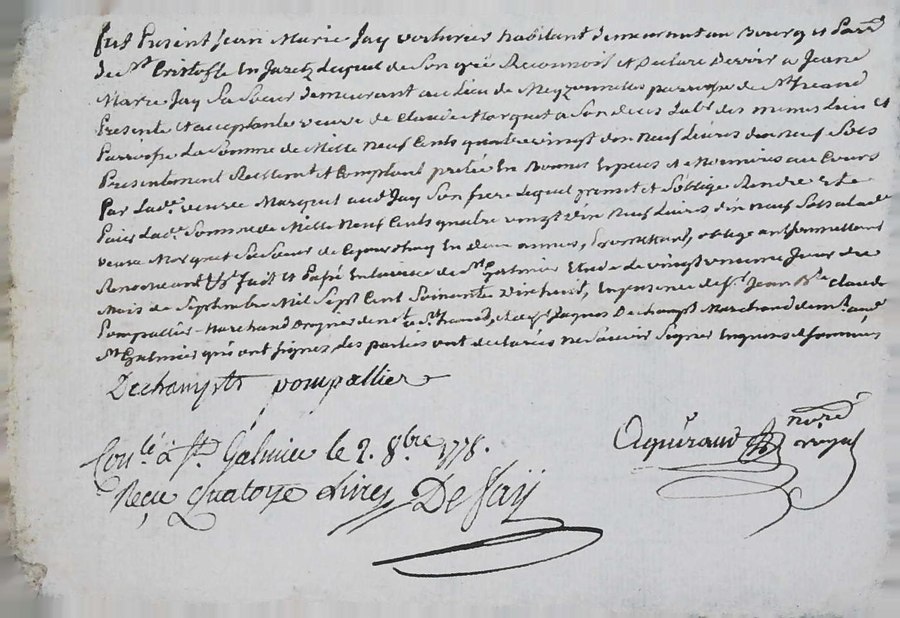 fut Present Jean Marie Jay voiturier habitant demeurant au Bourg et Parr.
de St. Cristofle En Jaretz Lequel de Son gré Reconnoit et Declare Devoir a Jeane
Marie Jay Sa Soeur demeurant au Lieu de parroisse de St.
Presente et acceptante veuve de Claude Marquet a Son deces Lab.r des memes Lieu et
Parroisse La Somme de Mille Neuf Cents quatre vingt dix Neuf Livres dix neuf Sols
Presentement Reellement et Comptant pretée En Bonnes Especes et Monnoies au Cours
Par Lad.e veuve Marquet aud. Jay Son frere Lequel promet et S'oblige Rendre et
Paier Lad.e Somme de Mille Neuf Cents quatre vingt dix Neuf Livres dix neuf Sols a lade
veuve Marquet Sa Soeur de Ce jourdhuy En deux annes, oblige
fait et Passé de St. galmier Etude Le vingt unieme Jour du
Mois de Septembre Mil Sept Cent Soixante dix huit, En presence de Sr. Jean Bte. Claude
Pompallier Marchand de et de Sr. Jaques Dechampt Marchand demt. aud.
St. Galmier qui ont Signés Les parties ont declarées ne Savoir Signer Enquises et Sommées
Dechampts pompallier
Con.lé à St. Galmier le 2. 8bre 1778.
Reçu Quatorze Livres De Jaÿ
nore.
royal